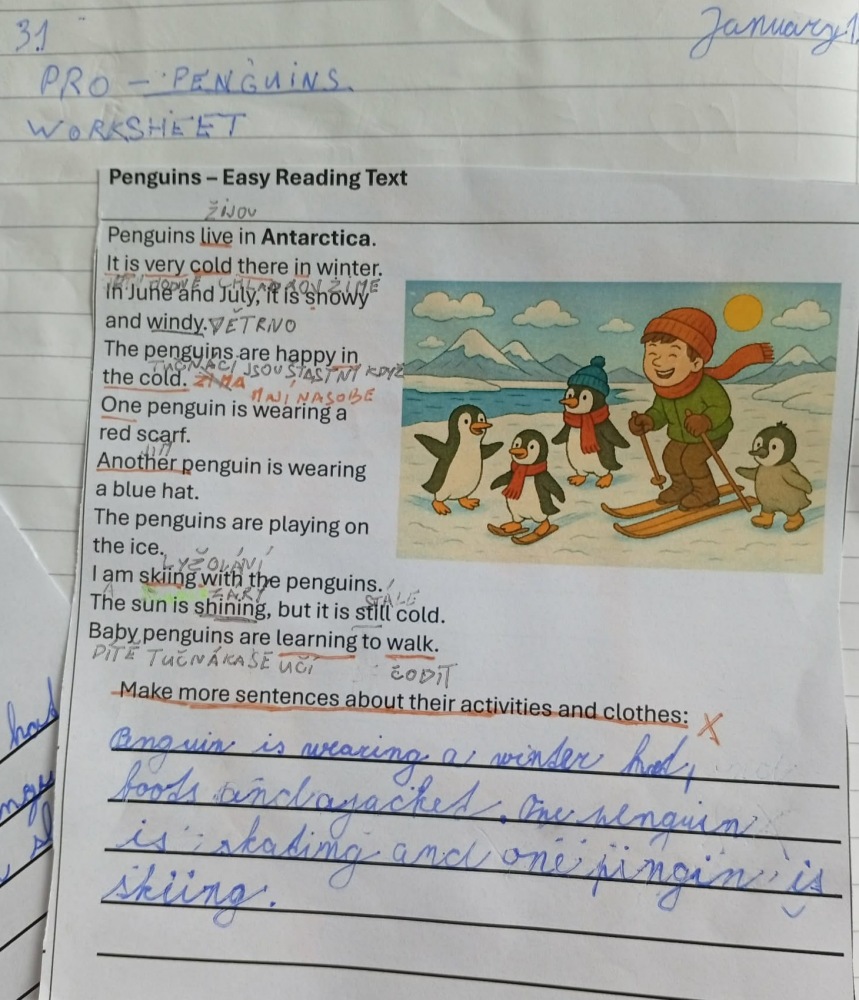 31
January 1
PRO - PENGUINS.
WORKSHEET
Penguins – Easy Reading Text
ŽIJOU
Penguins live in Antarctica.
It is very cold there in winter.
In June and July, it is snowy
and windy. VĚTRNO
The penguins are happy in
TUČŇÁCI JSOU ŠŤASTNÍ KDYŽ
the cold. ZIMA
MAJÍ NASOBĚ
One penguin is wearing a
red scarf.
Another penguin is wearing
a blue hat.
The penguins are playing on
the ice.
LYŽOVÁNÍ
I am skiing with the penguins.
STÁLE
The sun is shining, but it is still cold.
Baby penguins are learning to walk.
DÍTĚ TUČŇÁKA SE UČÍ
Make more sentences about their activities and clothes: X
Penguin is wearing a winter hat,
boots and a jacket. One penguin
is skating and one pingin is
skiing.